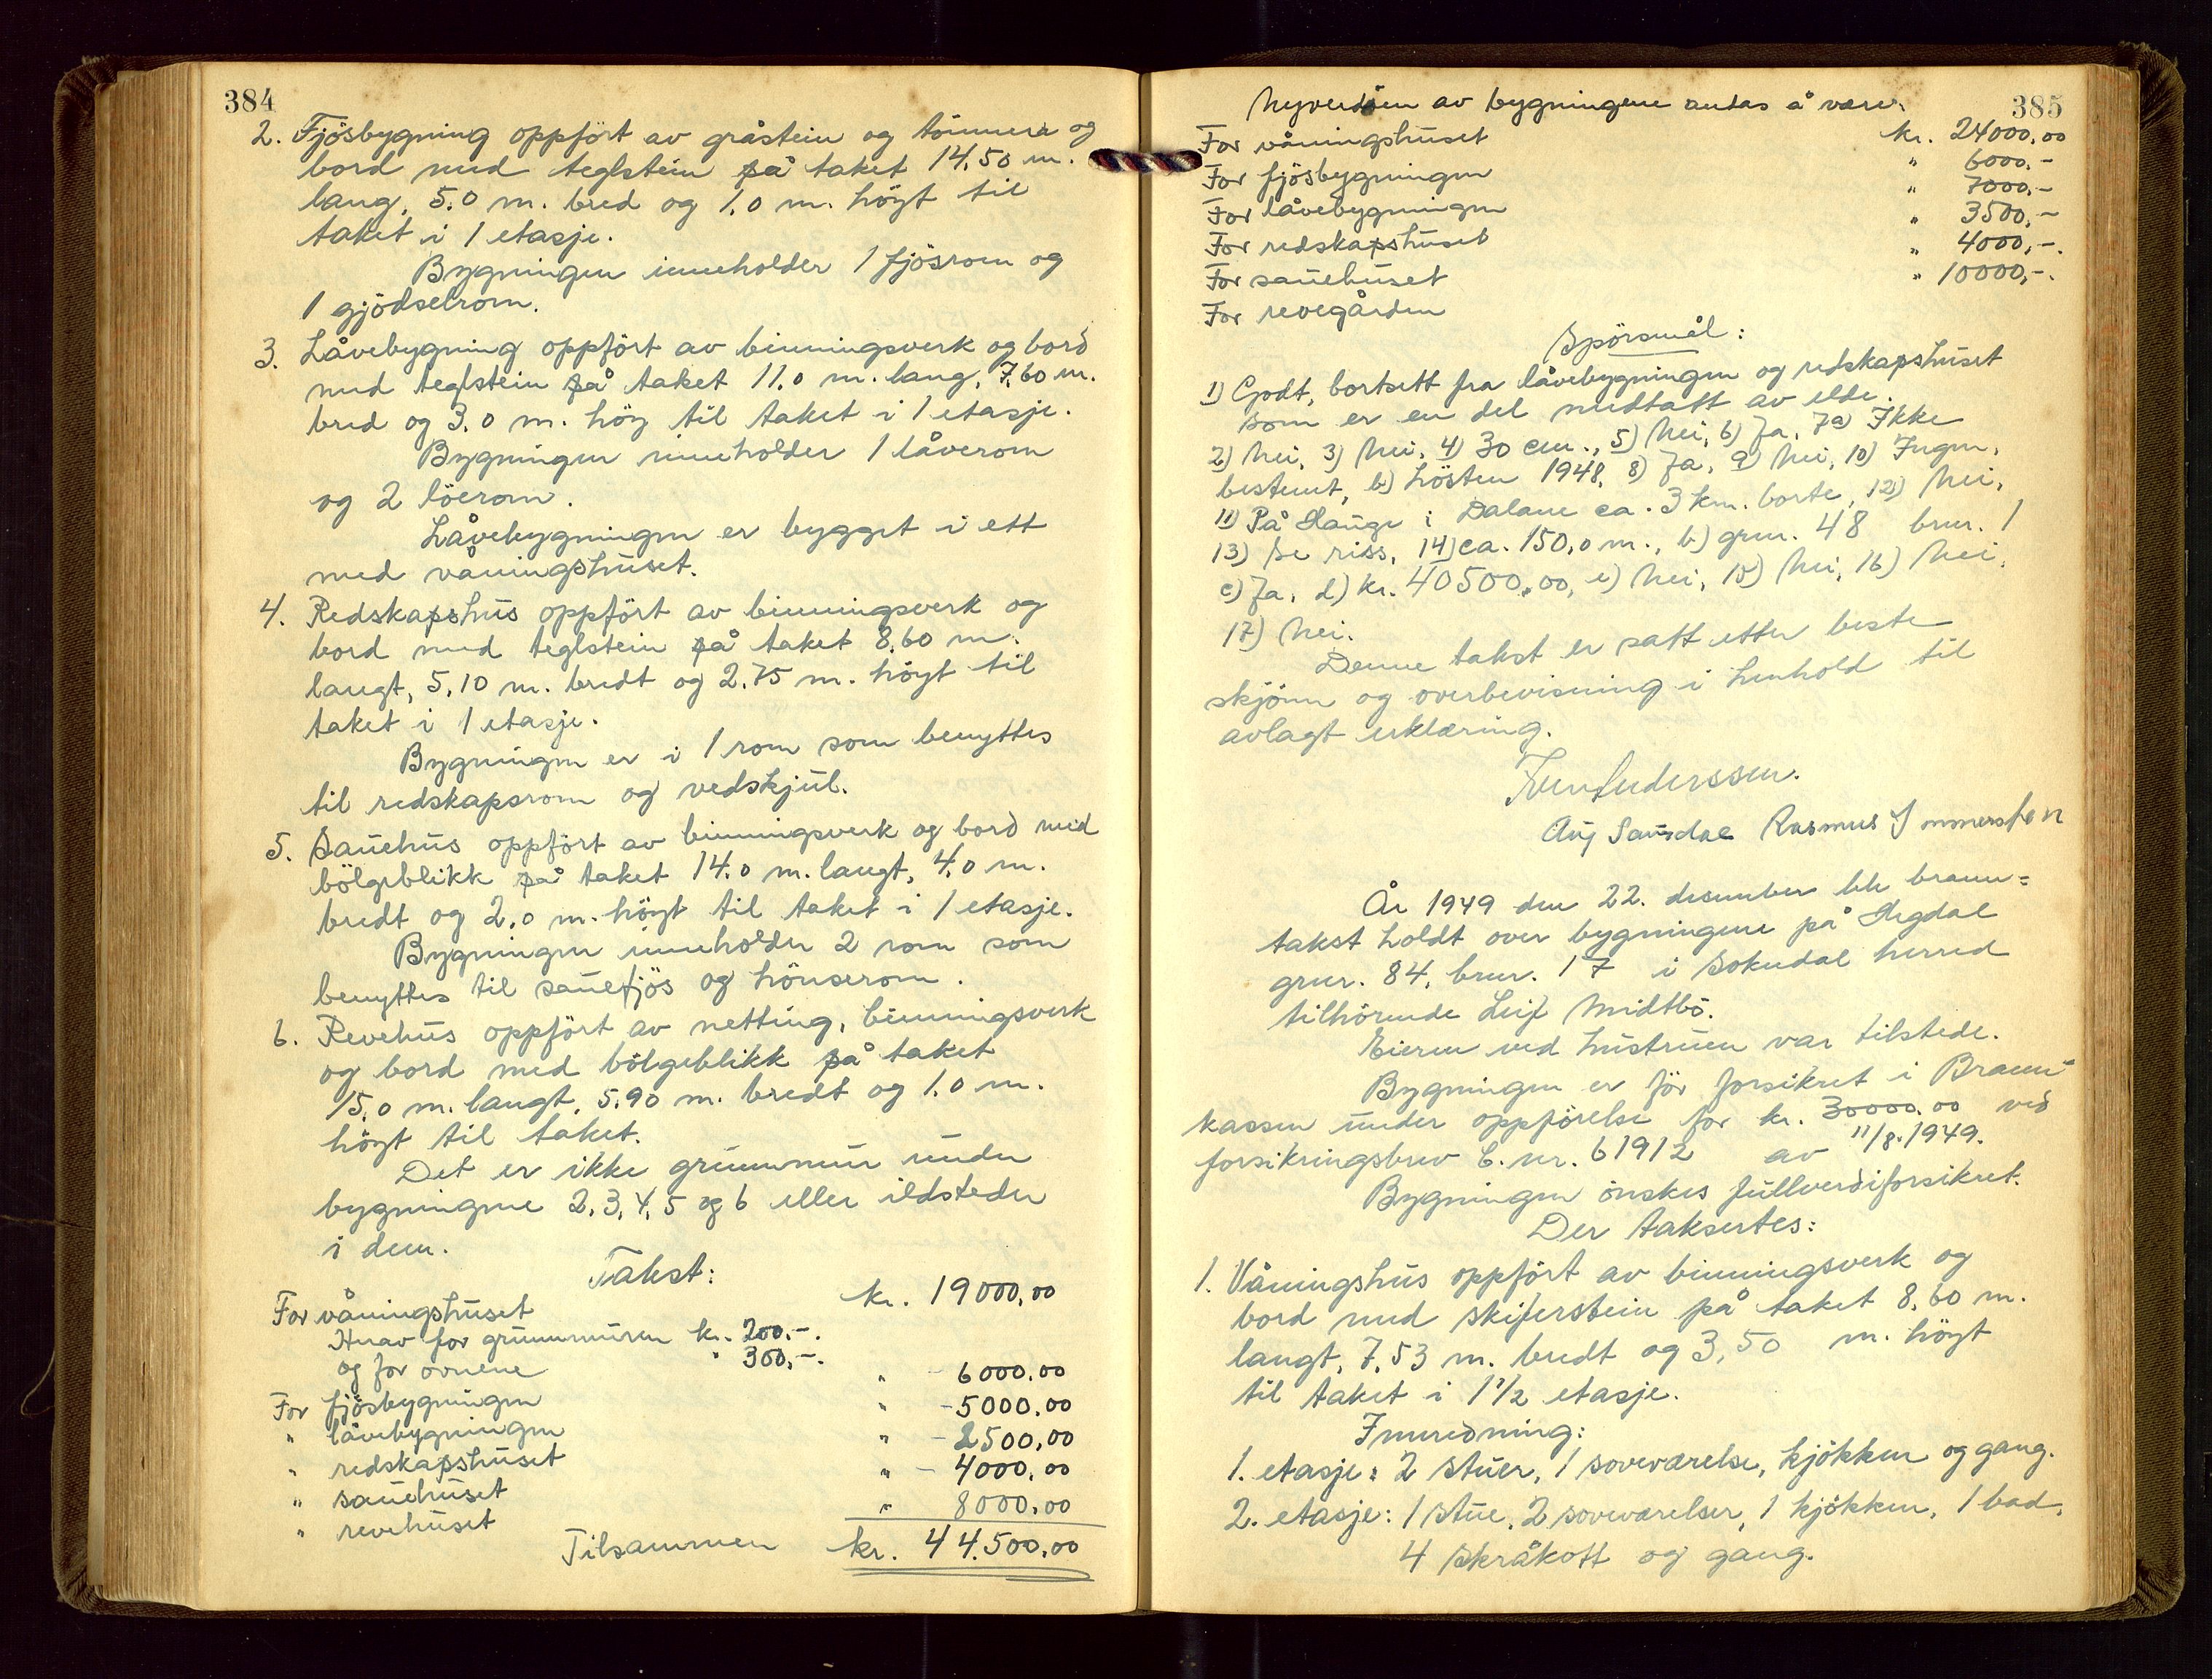 384
2. Fjösbygning oppfört av gråstein og tömmer og
bord med teglstein på taket 14,50 m.
lang, 5.0 m. bred og 1,0 m. höyt til
taket i 1 etasje.
Bygningen inneholder 1 fjösrom og
1 gjödselrom.
3. Låvebygning oppfört av binningsverk og bord
med teglstein på taket 11,0 m. lang, 7,60 m.
bred og 3,0 m. höy til taket i 1 etasje.
Bygningen inneholder 1 låverom
og 2 löerom.
Låvebygningen er bygget i ett
med våningshuset.
4. Redskapshus oppfört av binningsverk og
bord med teglstein på taket 8,60 m.
langt, 5,10 m. bredt og 2,75 m. höyt til
taket i 1 etasje.
Bygningen er i 1 rom som benyttes
til redskapsrom og vedskjul.
5. Sauehus oppfört av binningsverk og bord med
bölgeblikk på taket 14,0 m. langt, 4,0 m.
bredt og 2,0 m. höyt til taket i 1 etasje.
Bygningen inneholder 2 rom som
benyttes til sauefjös og hönserom.
6. Revehus oppfört av netting, binningsverk
og bord med bölgeblikk på taket
15,0 m. langt, 5,90 m. bredt og 1,0 m.
höyt til taket.
Det er ikke grunnmur under
bygningene 2, 3, 4, 5 og 6 eller ildsteder
i dem.
Takst:
For våningshuset kr. 19000,00
Herav for grunnmuren kr. 200,-.
og for ovnene " 300,-.
For fjösbygningen " - 6000,00
" låvebygningen " - 5000,00
" redskapshuset " - 2500,00
" sauehuset " - 4000,00
" revehuset " 8000,00
Tilsammen kr. 44.500,00
385
Nyverdien av bygningene antas å være:
For våningshuset kr. 24000,00
For fjösbygningen " 6000,-
For låvebygningen " 7000,-
For redskapshuset " 3500,-
For sauehuset " 4000,-.
For revegården " 10000,-.
Spörsmål:
1) Godt, bortsett fra låvebygningen og redskapshuset
som er en del medtatt av elde.
2) Nei, 3) Nei, 4) 30 cm., 5) Nei, 6) Ja, 7a) Ikke
bestemt, b) Hösten 1948, 8) Ja, 9) Nei, 10) Ingen,
11) På Hauge i Dalane ca. 3 km. borte, 12) Nei,
13) Se riss, 14) ca. 150,0 m., b) gnr. 48 bnr. 1
c) Ja, d) kr. 40500,00, e) Nei, 15) Nei, 16) Nei,
17) Nei.
Denne takst er satt etter beste
skjönn og overbevisning i henhold til
avlagt erklæring.
Aug Rasmus
År 1949 den 22. desember ble brann=
takst holdt over bygningene på Hegdal
gnr. 84, bnr. 17 i Sokndal herred
tilhörende Leif Midtbö.
Eieren ved hustruen var tilstede.
Bygningen er för forsikret i Brann-
kassen under oppförelse for kr. 30000,00 ved
forsikringsbrev C. nr. 61912 av 11/8. 1949.
Bygningen önskes fullverdiforsikret.
Der taksertes:
1. Våningshus oppfört av binningsverk og
bord med skiferstein på taket 8,60 m.
langt, 7,53 m. bredt og 3,50 m. höyt
til taket i 1 1/2 etasje.
Innredning:
1. etasje: 2 stuer, 1 soveværelse, kjökken og gang.
2. etasje: 1 stue, 2 soveværelser, 1 kjökken, 1 bad,
4 skråkott og gang.